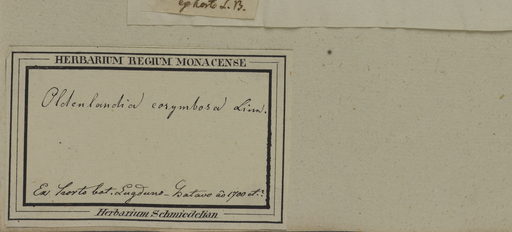 ex horto L. B.
HERBARIUM REGIUM MONACENSE
Oldenlandia corymbosa Linn.
Ex horto bot. Lugduno-Batavo ao 1700 et
Herbarium Schmiedelian